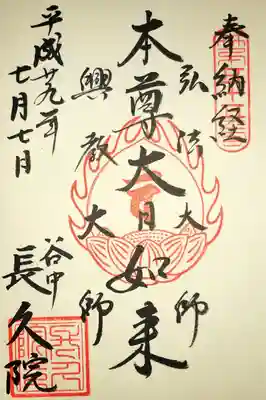 奉納経
弘法大師
本尊大日如来
興教大師
谷中
長久院
平成廿九年
七月七日